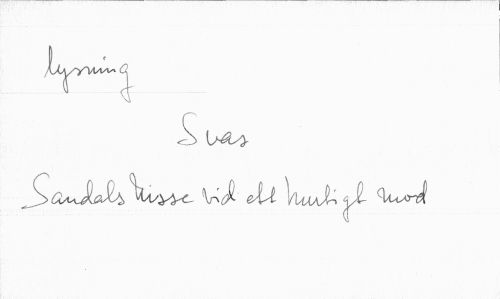 lysning
Svas
Sandals hisse vid ett hurtigt mod